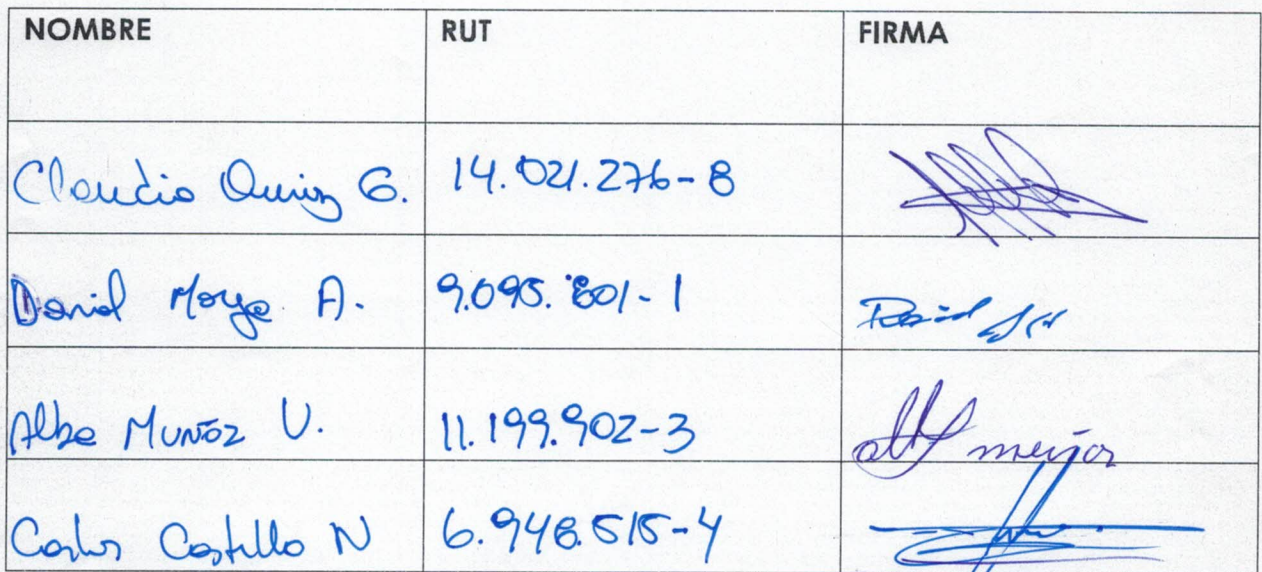 NOMBRE RUT FIRMA
Claudio Quiroz G. 14.021.276-8
David Moya A. 9.095.801-1 David
Alba MUÑOZ V. 11.199.902-3
Carlos Castillo N 6.948.515-4